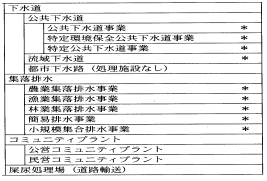 下水道
公共下水道
公共下水道事業 *
特定環境保全公共下水道事業 *
特定公共下水道事業 *
流域下水道 *
都市下水路（処理施設なし）
集落排水
農業集落排水事業 *
漁業集落排水事業 *
林業集落排水事業 *
簡易排水事業 *
小規模集合排水事業 *
コミュニティプラント
公営コミュニティプラント
民営コミュニティプラント
屎尿処理場（道路輸送）